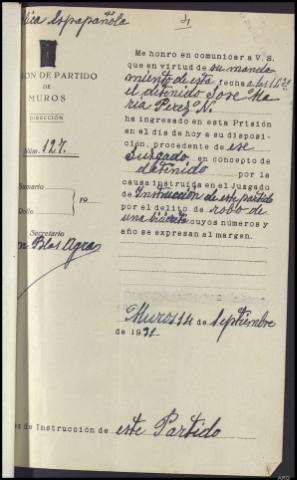 lica Española
Me honro en comunicar a V. S.
que en virtud de su manda
miento de esta fecha a las 14,20
el detenido Jose Ma
ria Perez N.
ION DE PARTIDO
DE
MUROS
DIRECCIÓN
Núm. 127.
ha ingresado en esta Prisión
en el día de hoy a su disposi-
ción, procedente de ese
Juzgado en concepto de
detenido por la
causa instruída en el Juzgado
de Instruccion de este partido
por el delito de robo de
una cuyos números y
año se expresan al margen.
Sumario
Rollo
19
Secretario
n Blas Agra
Muros 14 de Septiembre
de 1931.
de Instrucción de este Partido